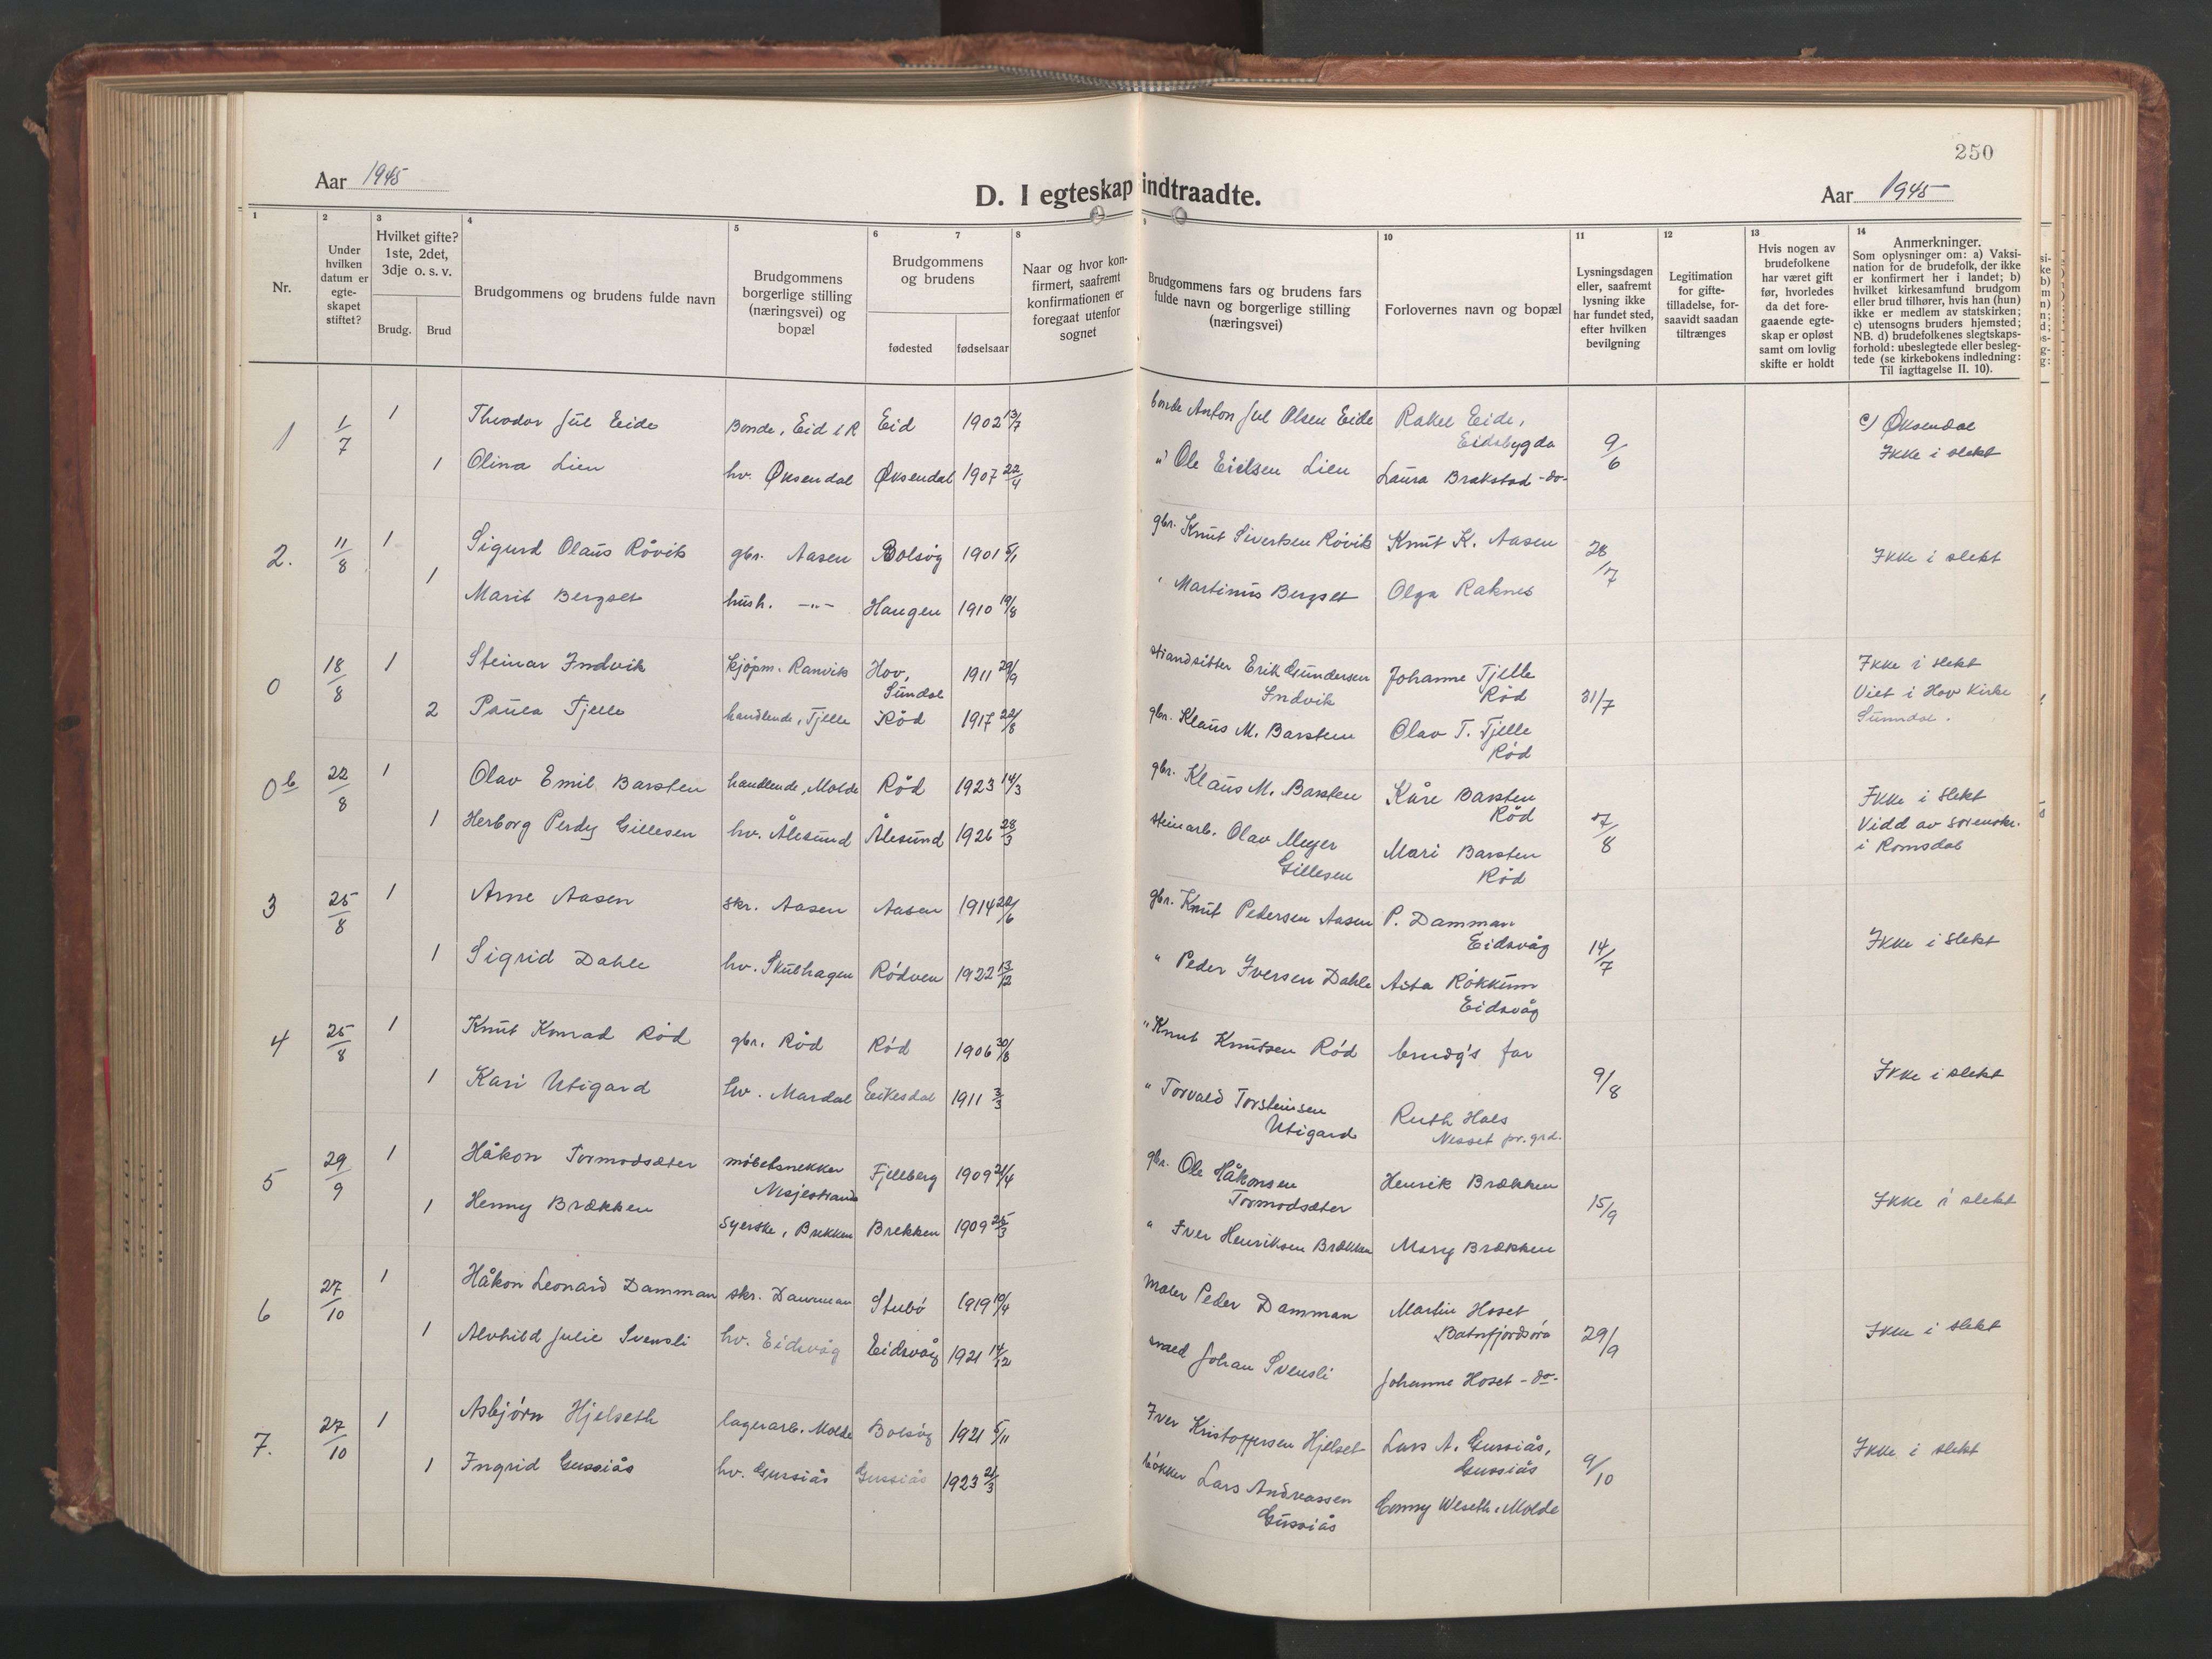 250
Aar 1945
D. I egteskap indtraadte.
Aar 1945
1
2 Under hvilken datum er egte-skapet stiftet?
3 Hvilket gifte? 1ste, 2det, 3dje o. s. v.
Brudg. Brud
Nr.
4 Brudgommens og brudens fulde navn
5 Brudgommens borgerlige stilling (næringsvei) og bopæl
6 7 Brudgommens og brudens
fødested fødselsaar
8 Naar og hvor kon-firmert, saafremt konfirmationen er foregaat utenfor sognet
9 Brudgommens fars og brudens fars fulde navn og borgerlige stilling (næringsvei)
10 Forlovernes navn og bopæl
11 Lysningsdagen eller, saafremt lysning ikke har fundet sted, efter hvilken bevilgning
12 Legitimation for gifte-tilladelse, for-saavidt saadan tiltrænges
13 Hvis nogen av brudefolkene har været gift før, hvorledes da det fore-gaaende egte-skap er opløst samt om lovlig skifte er holdt
14 Anmerkninger.
Som oplysninger om: a) Vaksi-nation for de brudefolk, der ikke er konfirmert her i landet; b) hvilket kirkesamfund brudgom eller brud tilhører, hvis han (hun) ikke er medlem av statskirken; c) utensogns bruders hjemsted; NB. d) brudefolkenes slegtskaps-forhold: ubeslegtede eller besleg-tede (se kirkebokens indledning: Til iagttagelse II. 10).
1 1/7 1 Theodor Jul Eide Bonde, Eid i R Eid 1902 13/7 bonde Anton Jul Olsen Eide Rakel Eide, Eidsbygda 9/6 c) Øksendal
1 Olina Lien hv. Øksendal Øksendal 1907 22/4 " Ole Eilsen Lien Laura Brakstad -do- Ikke i slekt
2. 11/8 1 Sigurd Olaus Røvik gbr. Aasen Bolsøy 1901 5/1 gbr. Knut Sivertsen Røvik Knut K. Aasen 28/7 Ikke i slekt
1 Marit Bergset hush. -"- Haugen 1910 19/8 " Martinus Bergset Olga Raknes
0 18/8 1 Steinar Indvik kjøpm. Ranvik Hov, Sundal 1911 29/9 strandsitter Erik Gundersen Indvik Johanne Tjelle Rød 31/7 Ikke i slekt
2 Paula Tjelle handlende, Tjelle Rød 1917 22/8 gbr. Klaus M. Barsten Olav T. Tjelle Rød Viet i Hov Kirke Sunndal.
0b 22/8 1 Olav Emil Barsten handlende, Molde Rød 1923 14/3 gbr. Klaus M. Barsten Kåre Barsten Rød 7/8 Ikke i slekt
1 Herborg Perdy Gillesen hv. Ålesund Ålesund 1926 28/3 steinarb. Olav Meyer Gillesen Mari Barsten Rød Vidd av sorenskr. i Romsdal
3 25/8 1 Arne Aasen skr. Aasen Aasen 1914 20/6 gbr. Knut Pedersen Aasen P. Damman Eidsvåg 14/7 Ikke i slekt
1 Sigrid Dahle hv. Skulhagen Rødven 1922 13/12 " Peder Iversen Dahle Asta Røkkum Eidsvåg
4 25/8 1 Knut Konrad Rød gbr. Rød Rød 1906 30/8 " Knut Knutsen Rød brudg's far 9/8 Ikke i slekt
1 Kari Utigard hv. Mardal Eikesdal 1911 3/3 " Torvald Torsteinsen Utigard Ruth Hals Nesset pr. grd.
5 29/9 1 Håkon Tormodsæter møbelsnekker Nesjestrand Fjelberg 1909 21/4 gbr. Ole Håkonsen Tormodsæter Henrik Brækken 15/9 Ikke i slekt
1 Henny Brækken syerske, Brekken Brekken 1909 25/3 " Iver Henriksen Brækken Mary Brækken
6 27/10 1 Håkon Leonard Damman skr. Damman Stubø 1919 10/4 maler Peder Damman Martin Hoset Batnfjordsøra 29/9 Ikke i slekt
1 Alvhild Julie Svensli hv. Eidsvåg Eidsvåg 1921 14/12 smed Johan Svensli Johanne Hoset -do-
7. 27/10 1 Asbjørn Hjelseth lagerarb. Molde Bolsøy 1921 5/11 Iver Kristoffersen Hjelset Lars A. Gussiås, Gussiås 9/10 Ikke i slekt
1 Ingrid Gussiås hv. Gussiås Gussiås 1923 21/3 bøkker Lars Andreassen Gussiås Conny Weseth, Molde